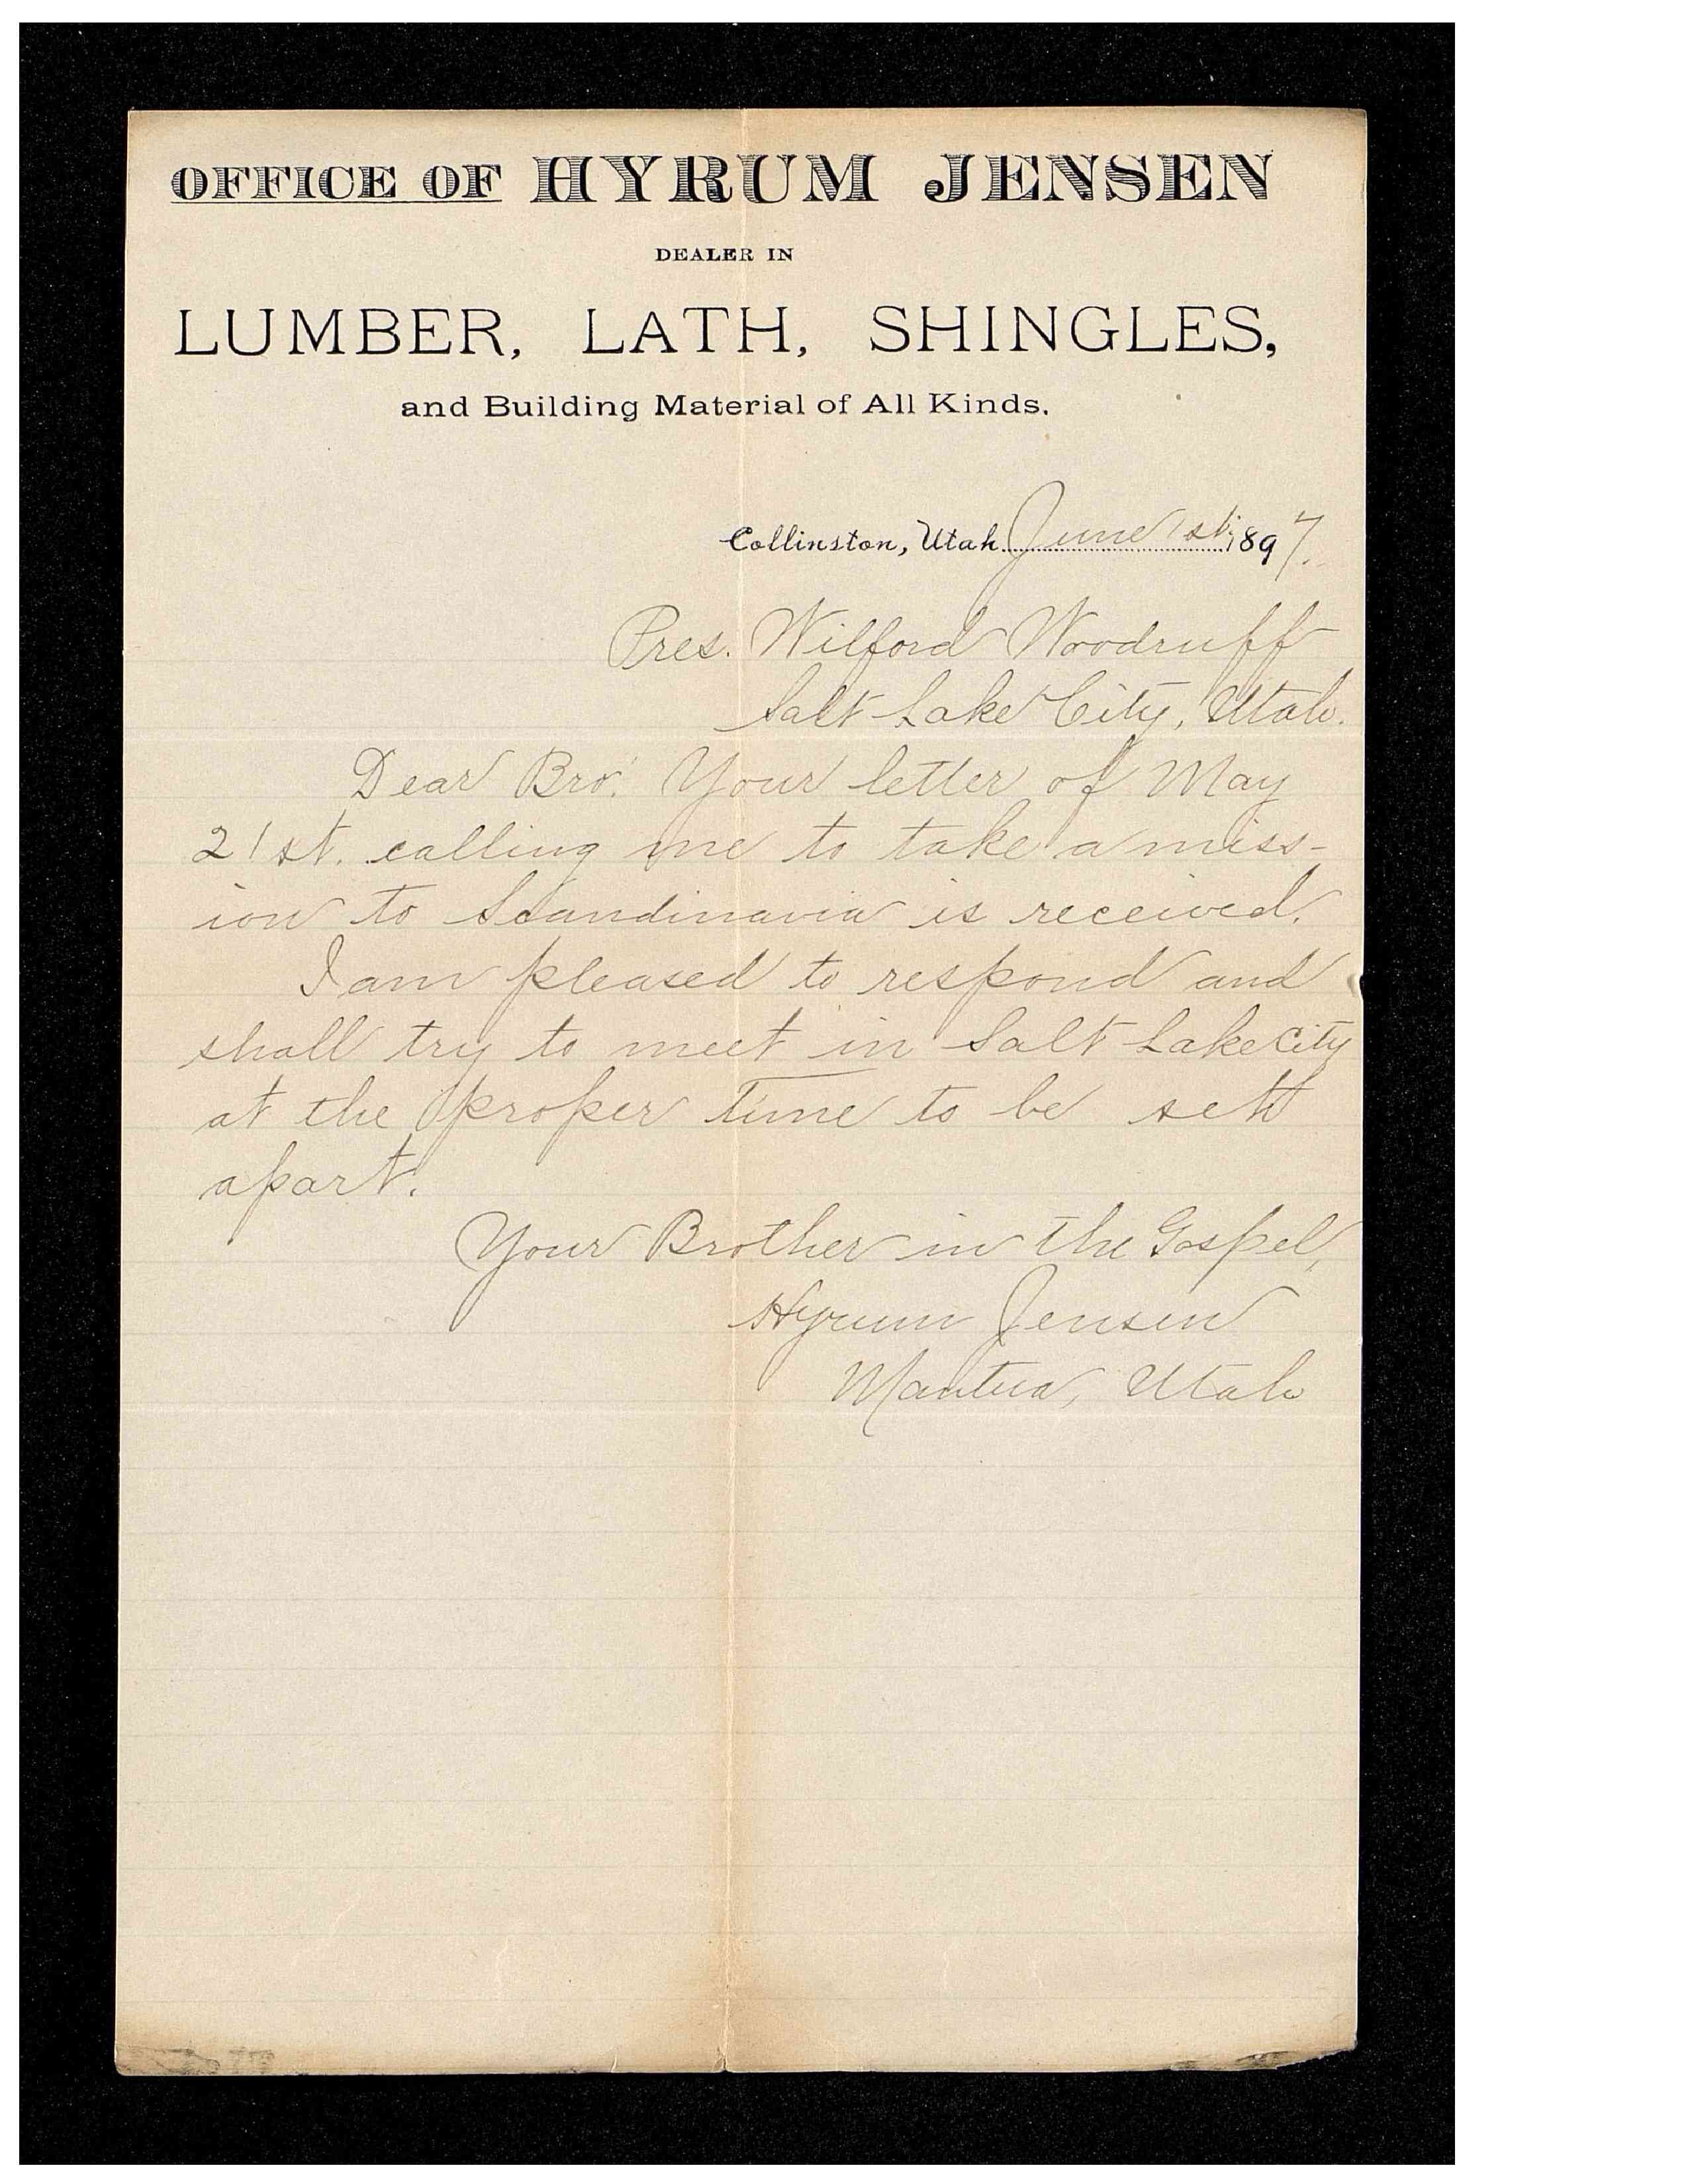 OFFICE OF HYRUM JENSEN
DEALER IN
LUMBER, LATH, SHINGLES,
and Building Material of All Kinds.
Collinston, Utah June 1st, 1897.
Pres. Wilford Woodruff
Salt Lake City, Utah.
Dear Bro: Your letter of May
21st. calling me to take a miss-
ion to Scandinavia is received.
I am pleased to respond and
shall try to meet in Salt Lake City
at the proper time to be sett
apart.
Your Brother in the Gospel,
Hyrum Jensen
Mantua, Utah